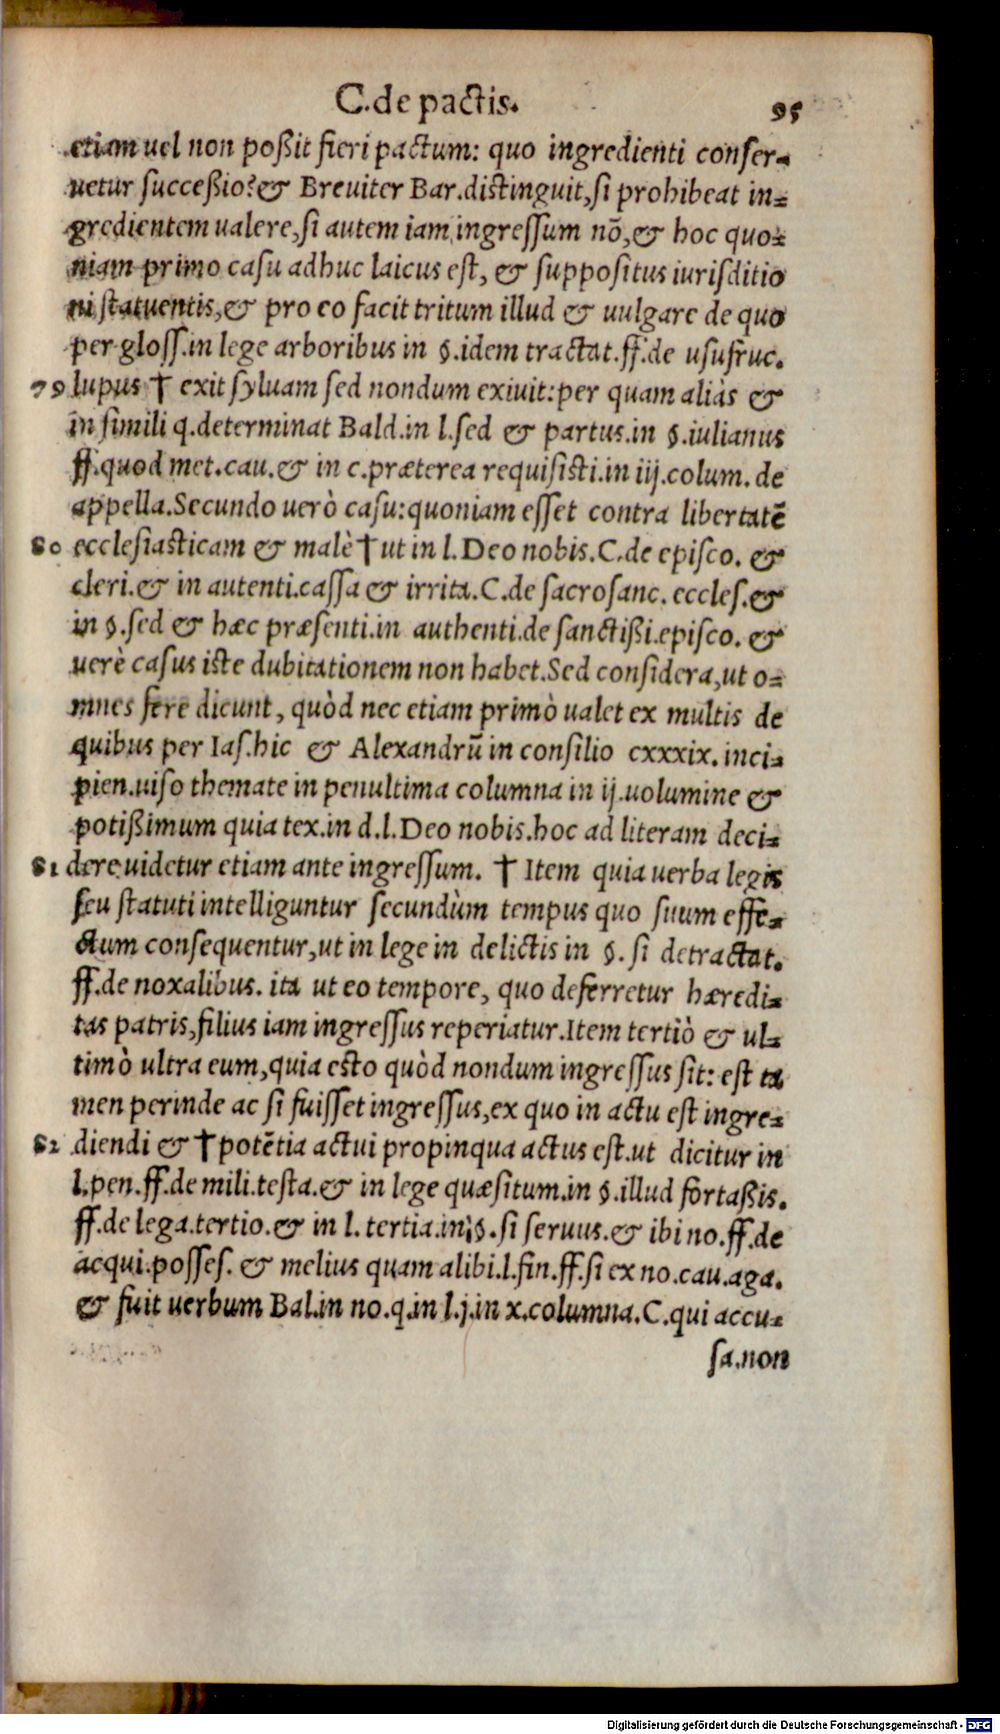 C. de pactis. 95
etiam uel non poßit fieri pactum: quo ingredienti conser-
uetur succeßio? & Breuiter Bar. distinguit, si prohibeat in-
gredientem ualere, si autem iam ingressum nō, & hoc quo-
niam primo casu adhuc laicus est, & suppositus iurisditio
ni statuentis, & pro eo facit tritum illud & uulgare de quo
per gloss. in lege arboribus in §. idem tractat. ff. de usufruc.
79 lupus † exit syluam sed nondum exiuit: per quam aliàs &
in simili q. determinat Bald. in l. sed & partus. in §. iulianus
ff. quod met. cau. & in c. præterea requisisti. in iij. colum. de
appella. Secundo uerò casu: quoniam esset contra libertatē
80 ecclesiasticam & malè † ut in l. Deo nobis. C. de episco. &
cleri. & in autenti. cassa & irrita. C. de sacrosanc. eccles. &
in §. sed & hæc præsenti. in authenti. de sanctißi. episco. &
uerè casus iste dubitationem non habet. Sed considera, ut o-
mnes fere dicunt, quòd nec etiam primò ualet ex multis de
quibus per Ias. hic & Alexandrū in consilio cxxxix. inci-
pien. uiso themate in penultima columna in ij. uolumine &
potißimum quia tex. in d. l. Deo nobis. hoc ad literam deci-
81 dere uidetur etiam ante ingressum. † Item quia uerba legis
seu statuti intelliguntur secundùm tempus quo suum effe-
ctum consequentur, ut in lege in delictis in §. si detractat.
ff. de noxalibus. ita ut eo tempore, quo deferretur hæredi-
tas patris, filius iam ingressus reperiatur. Item tertiò & ul-
timò ultra eum, quia esto quòd nondum ingressus sit: est ta
men perinde ac si fuisset ingressus, ex quo in actu est ingre-
82 diendi & † potētia actui propinqua actus est. ut dicitur in
l. pen. ff. de mili. testa. & in lege quæsitum. in §. illud fortaßis.
ff. de lega. tertio. & in l. tertia. in §. si seruus. & ibi no. ff. de
acqui. posses. & melius quam alibi. l. fin. ff. si ex no. cau. aga.
& fuit uerbum Bal. in no. q. in l. j. in x. columna. C. qui accu-
sa. non
Digitalisierung gefördert durch die Deutsche Forschungsgemeinschaft - DFG